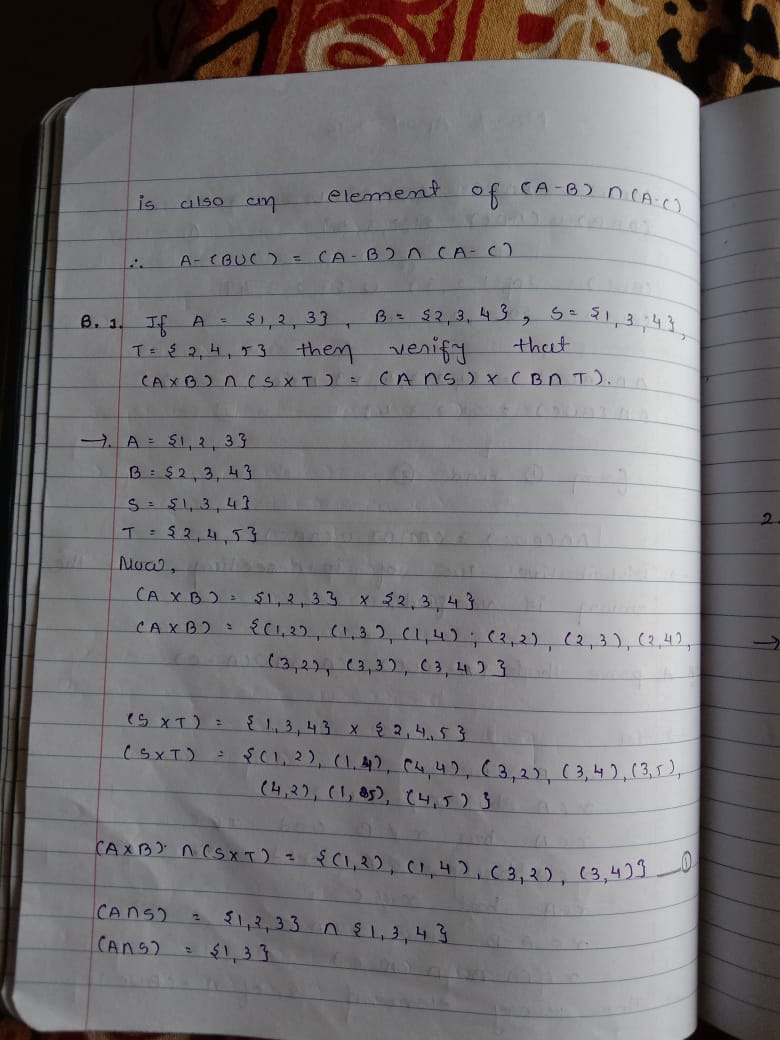 is also an element of (A-B) ∩ (A-C)
∴ A-(BUC) = (A-B) ∩ (A-C)
B. 1. If A = {1, 2, 3}, B = {2, 3, 4}, S = {1, 3, 4},
T = {2, 4, 5} then verify that
(A×B) ∩ (S×T) = (A∩S) × (B∩T).
→. A = {1, 2, 3}
B = {2, 3, 4}
S = {1, 3, 4}
T = {2, 4, 5}
Now,
(A×B) = {1, 2, 3} × {2, 3, 4}
(A×B) = {(1,2), (1,3), (1,4), (2,2), (2,3), (2,4),
(3,2), (3,3), (3,4)}
(S×T) = {1, 3, 4} × {2, 4, 5}
(S×T) = {(1,2), (1,4), (4,4), (3,2), (3,4), (3,5),
(4,2), (1,5), (4,5)}
(A×B) ∩ (S×T) = {(1,2), (1,4), (3,2), (3,4)} —①
(A∩S) = {1, 2, 3} ∩ {1, 3, 4}
(A∩S) = {1, 3}
2.
→